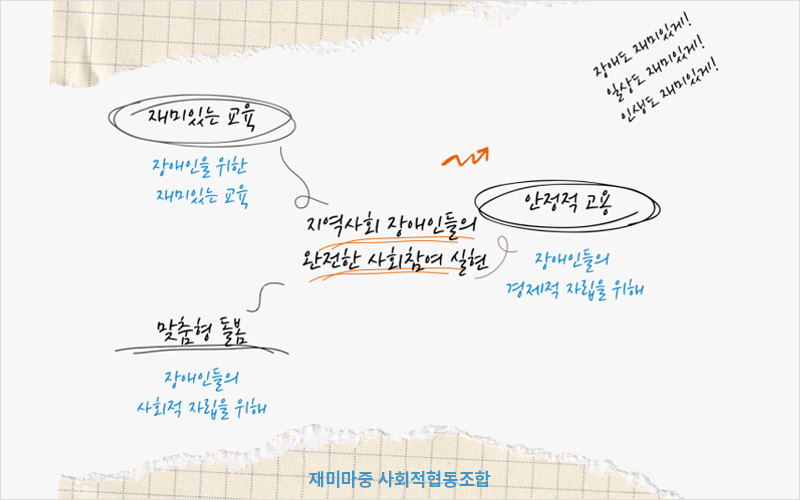 장애도 재미있게!
일상도 재미있게!
인생도 재미있게!
재미있는 교육
장애인을 위한
재미있는 교육
안정적 고용
지역사회 장애인들의
완전한 사회참여 실현
장애인들의
경제적 자립을 위해
맞춤형 돌봄
장애인들의
사회적 자립을 위해
재미마중 사회적협동조합